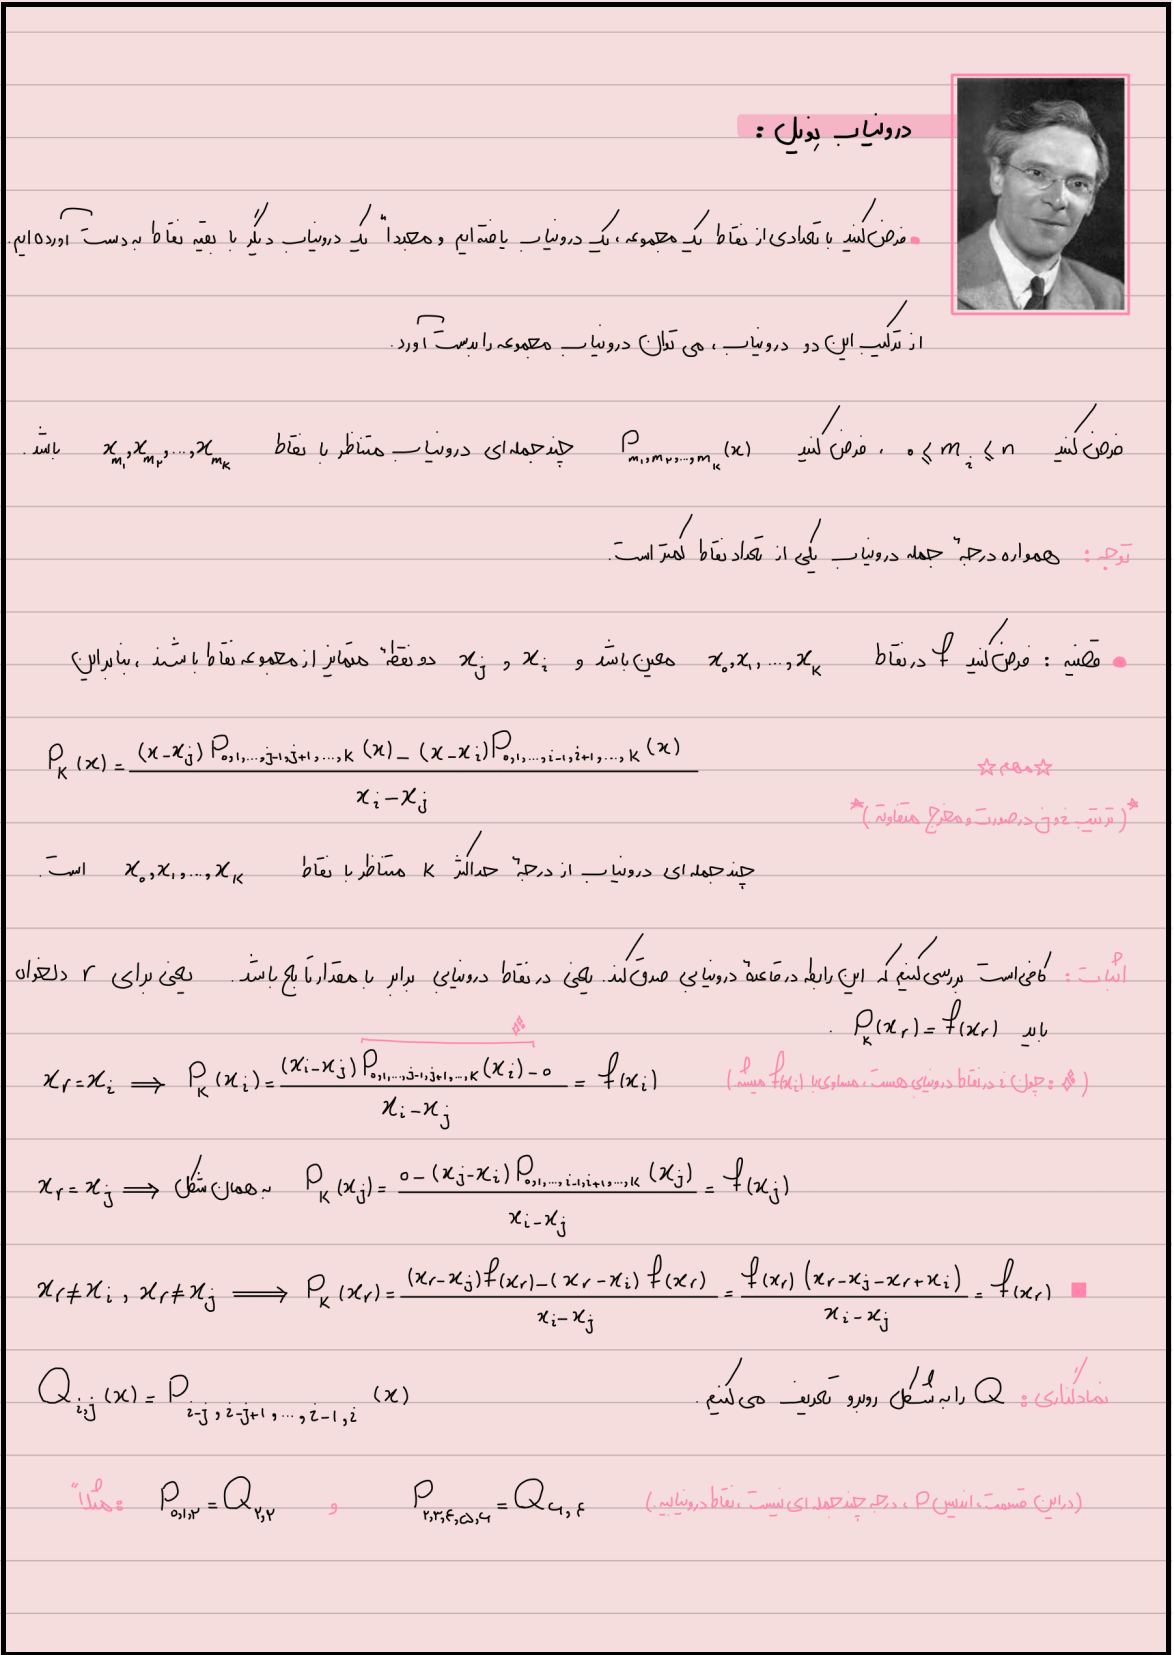 درونیاب نویل :
• فرض کنید با تعدادی از نقاط یک مجموعه ، یک درونیاب یافته ایم و مجدداً یک درونیاب دیگر با بقیه نقاط به دست آورده ایم.
از ترکیب این دو درونیاب ، می توان درونیاب مجموعه را بدست آورد.
فرض کنید ۰ ⩽ m_i ⩽ n ، فرض کنید P_{m_۱,m_۲,...,m_k}(x) چندجمله ای درونیاب متناظر با نقاط x_{m_۱},x_{m_۲},...,x_{m_k} باشد.
توجه : همواره درجهٔ جمله درونیاب یکی از تعداد نقاط کمتر است.
• قضیه : فرض کنید f در نقاط x_۰,x_۱,...,x_k معین باشد و x_i و x_j دو نقطهٔ متمایز از مجموعه نقاط باشند ، بنابراین
P_k(x) = ((x-x_j)P_{۰,۱,...,j-۱,j+۱,...,k}(x) - (x-x_i)P_{۰,۱,...,i-۱,i+۱,...,k}(x)) / (x_i-x_j) ☆مهم☆
*(ترتیب i و j در صورت و مخرج متفاوته.)*
چندجمله ای درونیاب از درجهٔ حداکثر k متناظر با نقاط x_۰,x_۱,...,x_k است.
اثبات : کافی است بررسی کنیم که این رابطه در قاعدهٔ درونیابی صدق کند. یعنی در نقاط درونیابی برابر با مقدار تابع باشد. یعنی برای r دلخواه
باید P_k(x_r) = f(x_r) .
x_r=x_i ⟹ P_k(x_i) = ((x_i-x_j)P_{۰,۱,...,j-۱,j+۱,...,k}(x_i) - ۰) / (x_i-x_j) = f(x_i) (❖ : چون i در نقاط درونیابی هست، مساوی با f(x_i) میشه)
x_r=x_j ⟹ به همان شکل P_k(x_j) = (۰-(x_j-x_i)P_{۰,۱,...,i-۱,i+۱,...,k}(x_j)) / (x_i-x_j) = f(x_j)
x_r≠x_i , x_r≠x_j ⟹ P_k(x_r) = ((x_r-x_j)f(x_r)-(x_r-x_i)f(x_r)) / (x_i-x_j) = (f(x_r)(x_r-x_j-x_r+x_i)) / (x_i-x_j) = f(x_r) ■
نمادگذاری : Q را به شکل روبرو تعریف می کنیم. Q_{i,j}(x) = P_{i-j,i-j+۱,...,i-۱,i}(x)
مثلاً : P_{۰,۱,۲} = Q_{۲,۲} و P_{۲,۳,۴,۵,۶} = Q_{۶,۴} (در این قسمت، اندیس P ، درجه چندجمله ای نیست ، نقاط درونیابیه.)